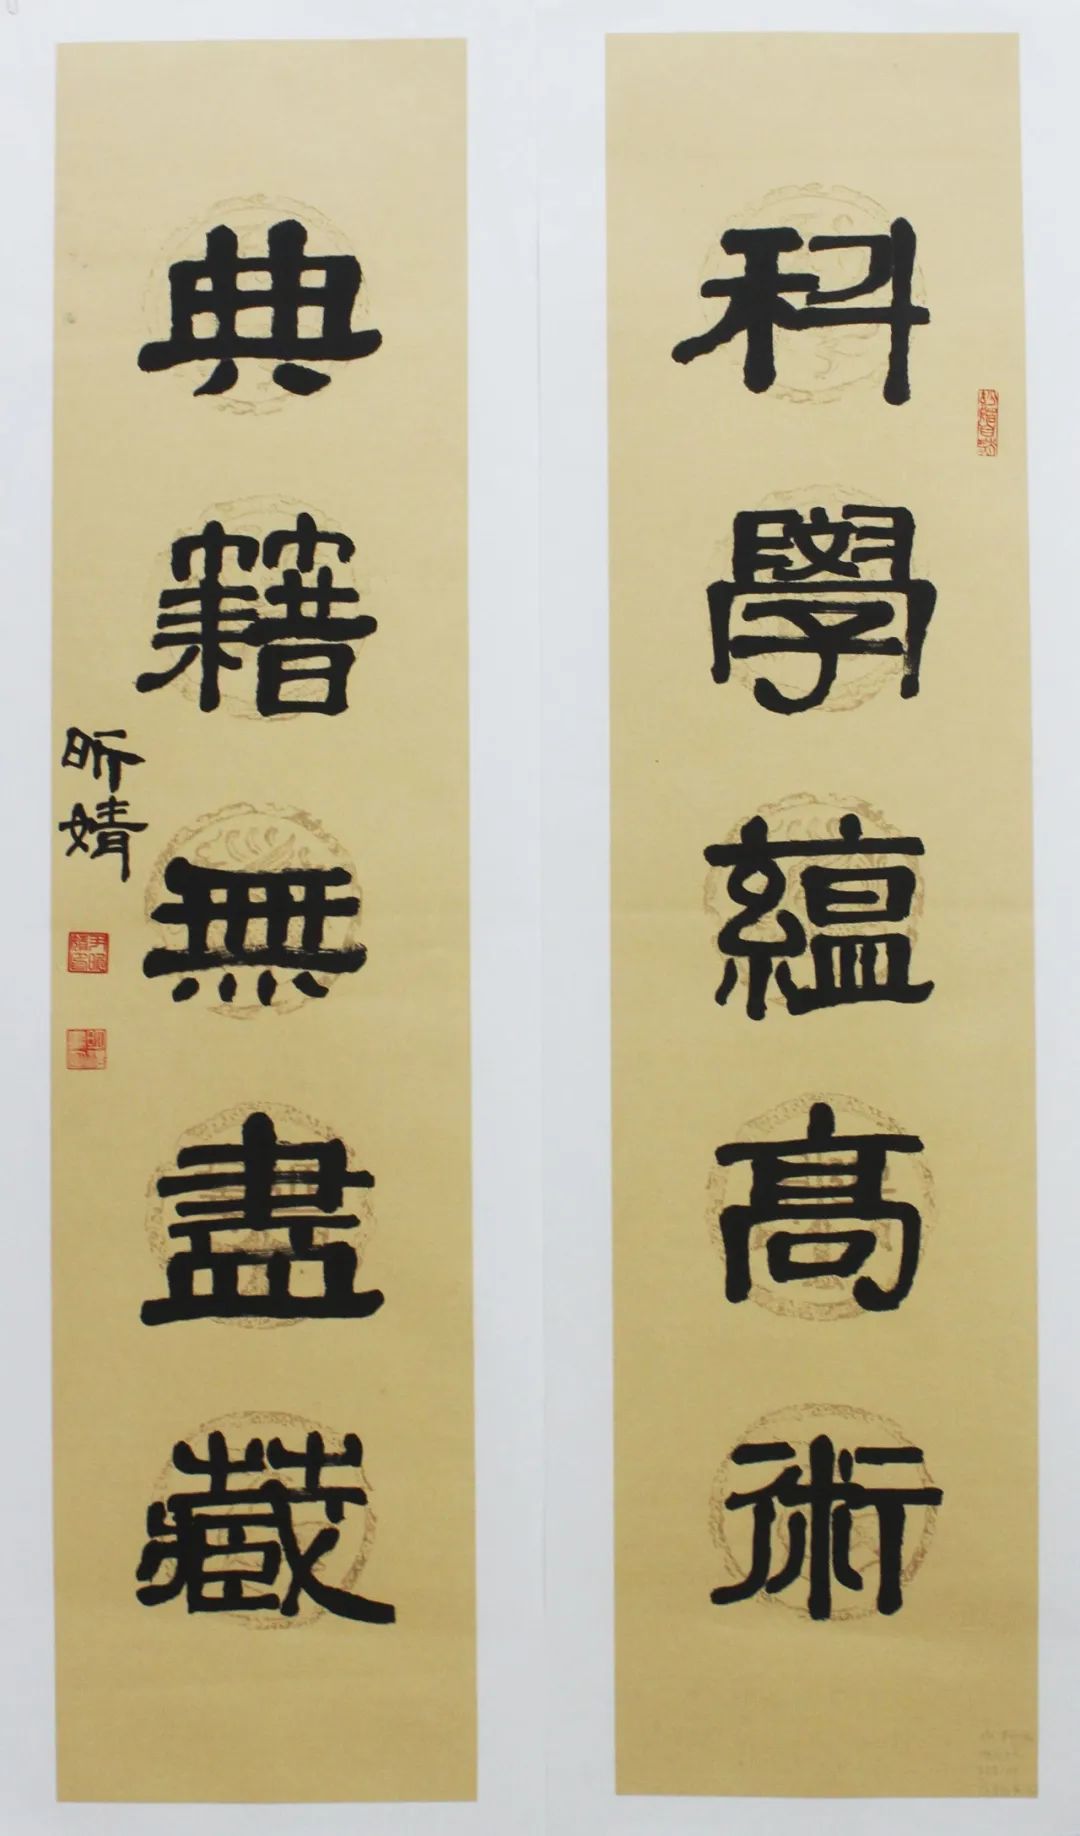 科學蘊高術
典籍無盡藏
昕婧